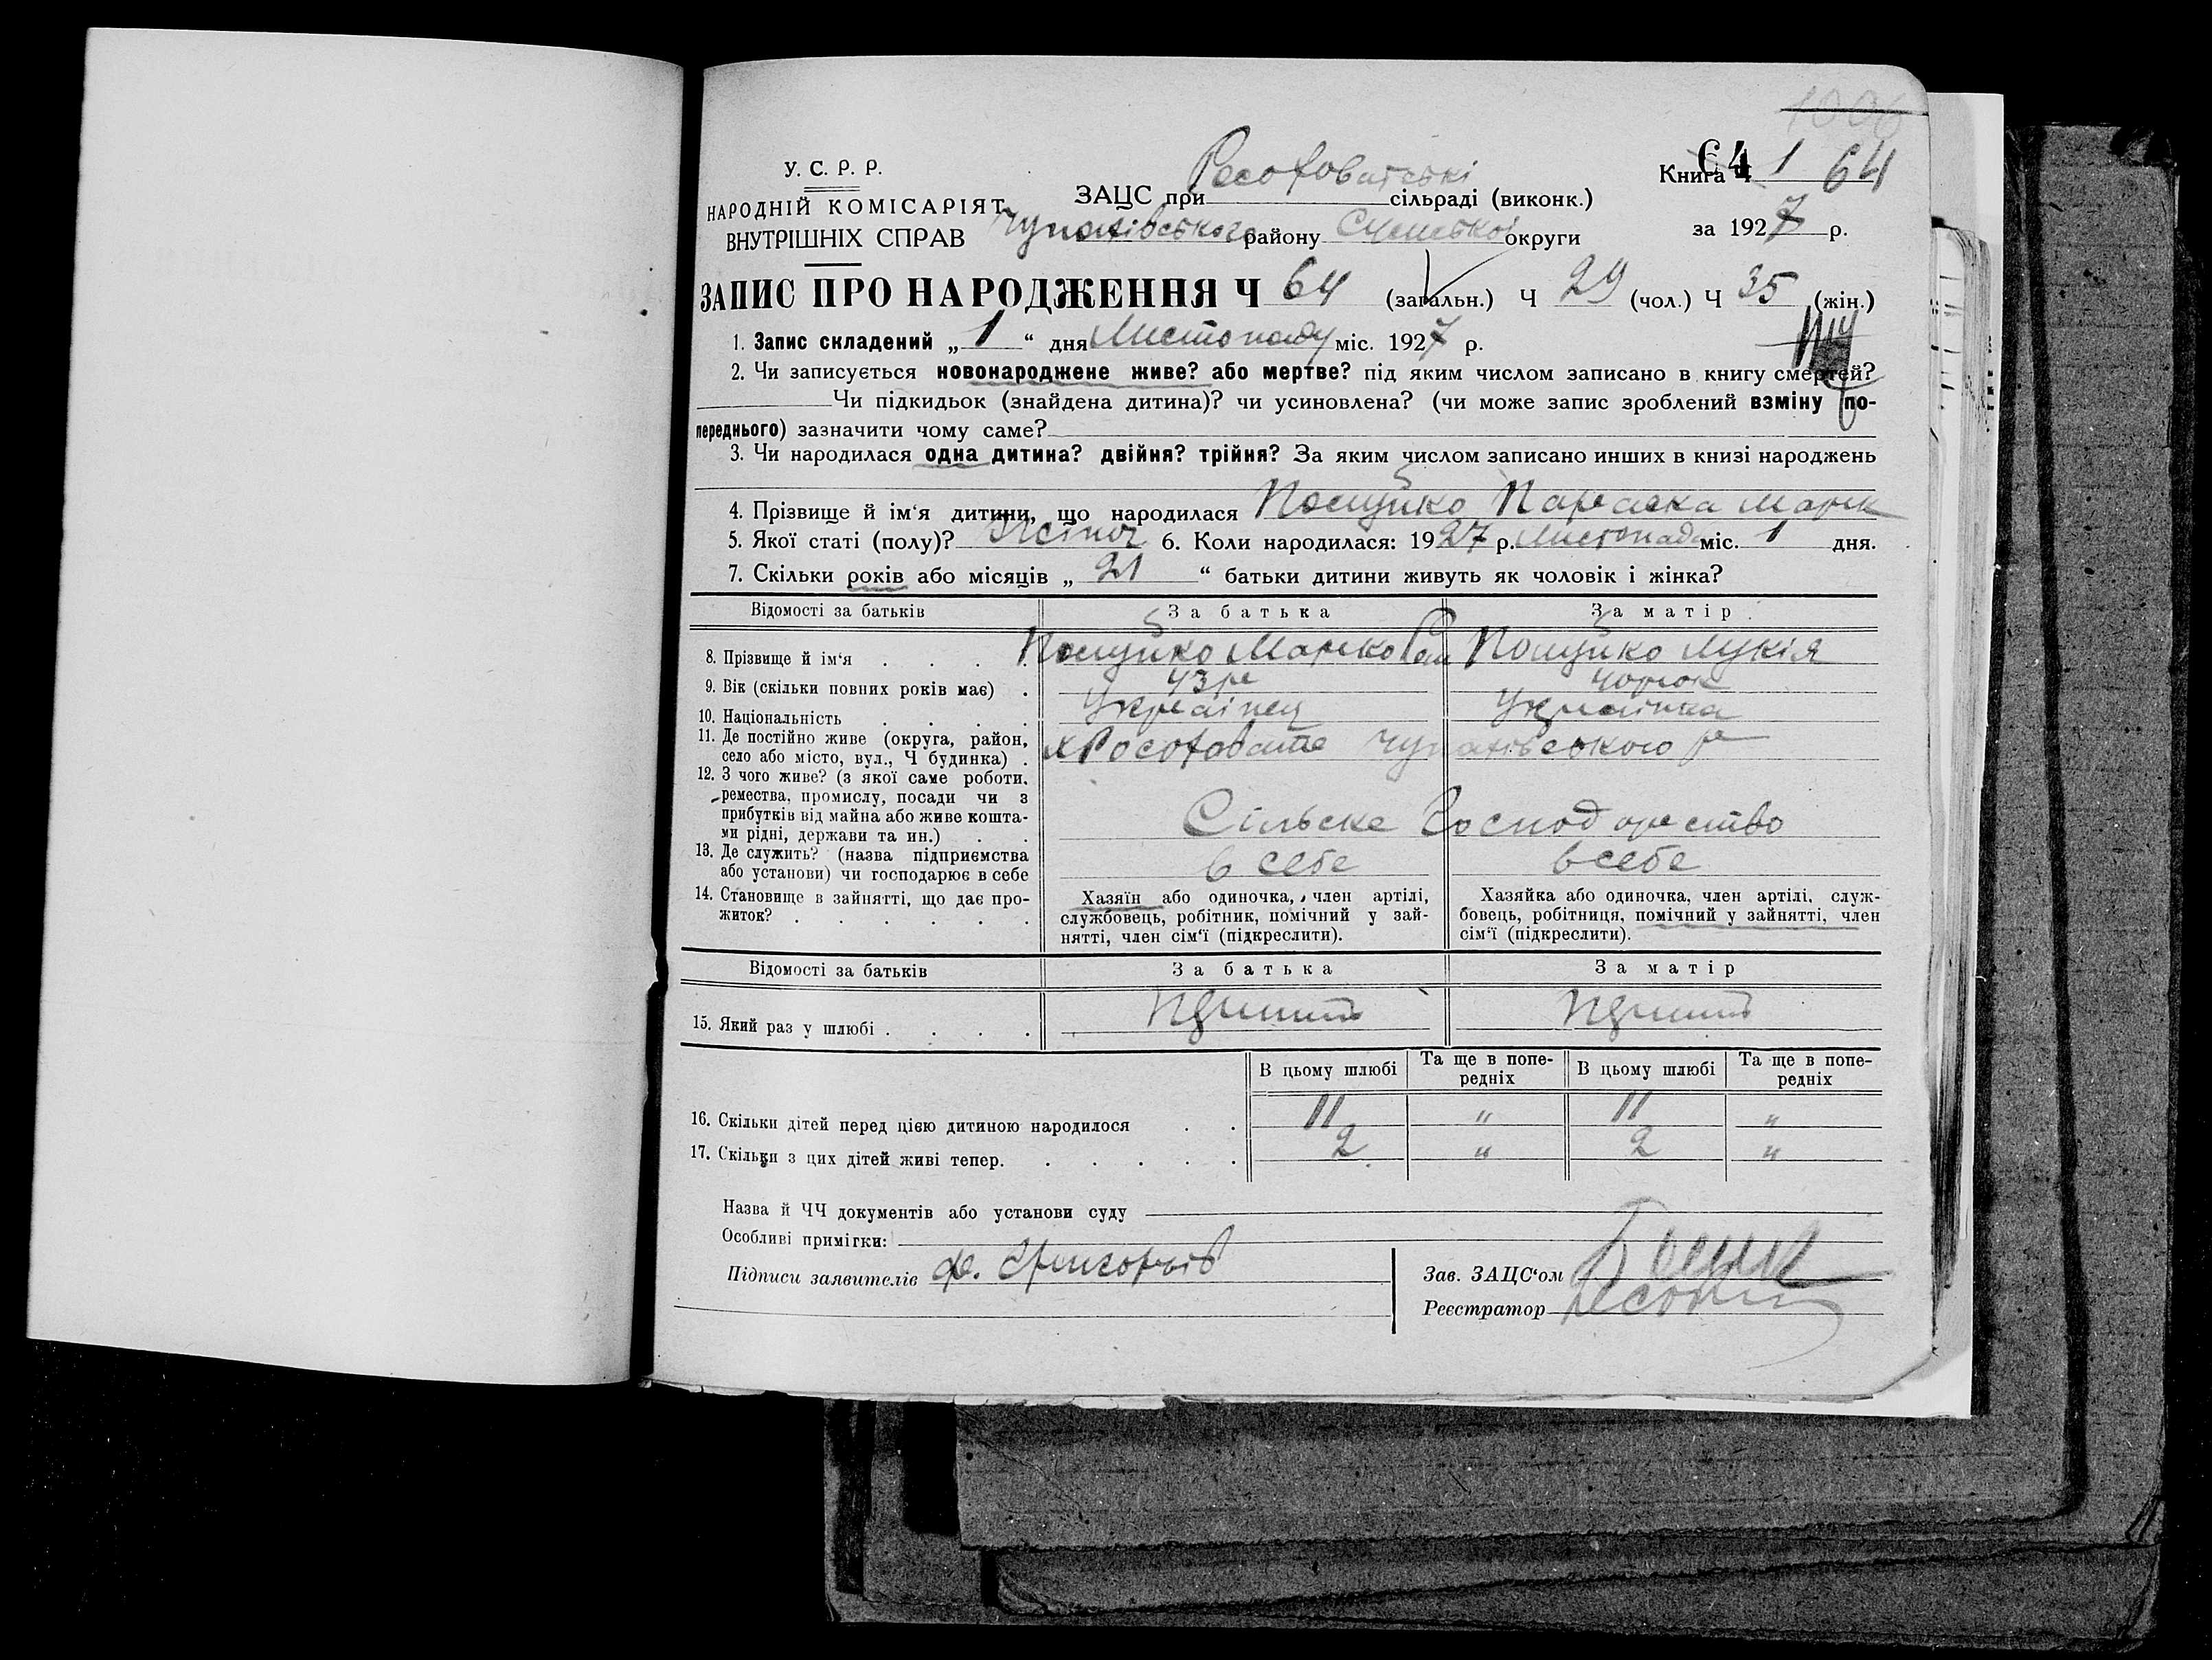 1006
У. С. Р. Р.
НАРОДНІЙ КОМІСАРІЯТ
ВНУТРІШНІХ СПРАВ
ЗАЦС при Росоховатські сільраді (виконк.)
Чупахівського району Сумської округи
Книга Ч 1 64
64
за 1927 р.
ЗАПИС ПРО НАРОДЖЕННЯ Ч 64 (загальн.) Ч 29 (чол.) Ч 35 (жін.)
1. Запис складений „ 1 “ дня Листопаду міс. 1927 р.
2. Чи записується новонароджене живе? або мертве? під яким числом записано в книгу смертей?
Чи підкидьок (знайдена дитина)? чи усиновлена? (чи може запис зроблений взміну по-
переднього) зазначити чому саме?
3. Чи народилася одна дитина? двійня? трійня? За яким числом записано инших в книзі народжень
4. Прізвище й ім‘я дитини, що народилася Параска Марк
5. Якої статі (полу)? Жіноч 6. Коли народилася: 1927 р. Листопада міс. 1 дня.
7. Скільки років або місяців „ 21 “ батьки дитини живуть як чоловік і жінка?
Відомості за батьків За батька За матір
8. Прізвище й ім‘я . . . . Марко Лукія
9. Вік (скільки повних років має) . 43 р
10. Національність . . . . Українец Українка
11. Де постійно живе (округа, район,
село або місто, вул., Ч будинка) . х Росоховате Чупахівського р
12. З чого живе? (з якої саме роботи,
ремества, промислу, посади чи з
прибутків від майна або живе кошта-
ми рідні, держави та ин.) . . Сільске Господарство
13. Де служить? (назва підприємства
або установи) чи господарює в себе в себе в себе
14. Становище в зайнятті, що дає про-
житок? . . . . . .
Хазяїн або одиночка, член артілі,
службовець, робітник, помічний у зай-
нятті, член сім‘ї (підкреслити).
Хазяйка або одиночка, член артілі, служ-
бовець, робітниця, помічний у зайнятті, член
сім‘ї (підкреслити).
Відомості за батьків За батька За матір
15. Який раз у шлюбі . . . .
В цьому шлюбі Та ще в попе-
редніх В цьому шлюбі Та ще в попе-
редніх
16. Скільки дітей перед цією дитиною народилося . . 11 „ 11 „
17. Скільки з цих дітей живі тепер. . . . . . 2 „ 2 „
Назва й ЧЧ документів або установи суду
Особливі примітки:
Підписи заявителів
Зав. ЗАЦС‘ом
Реєстратор